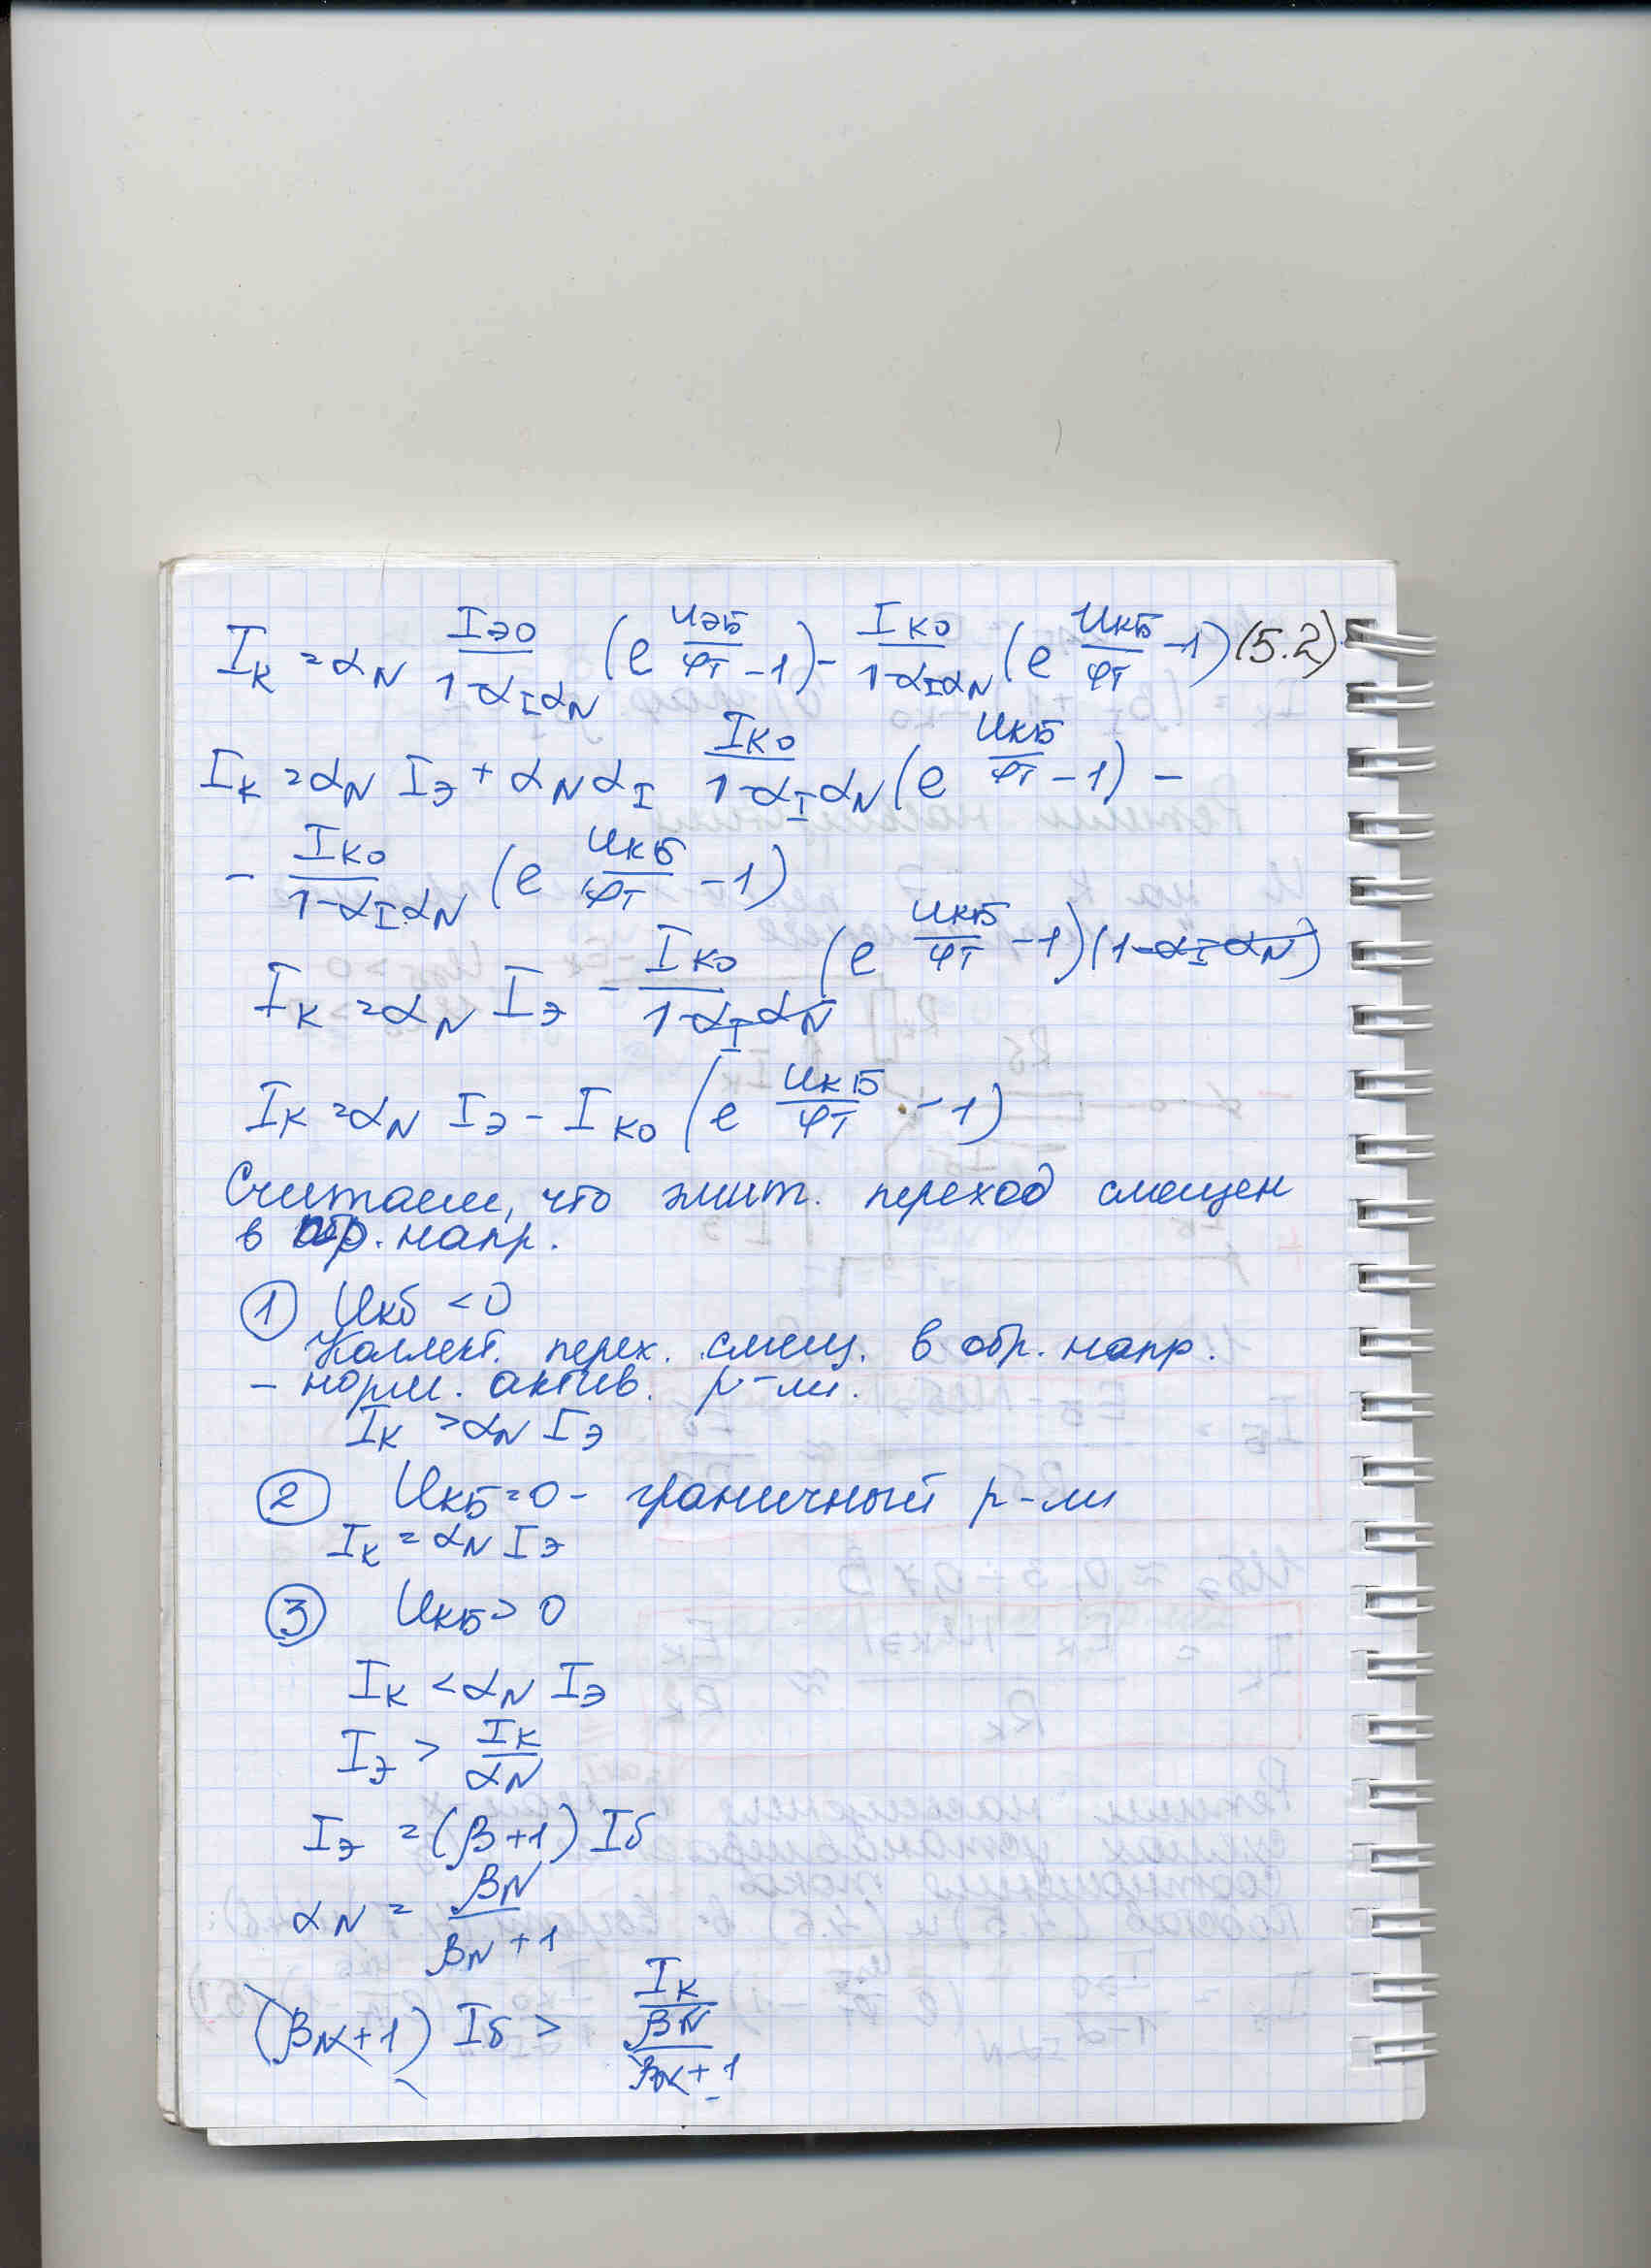 I_К = α_N I_ЭО/(1-α_I α_N) (e^(U_ЭБ/φ_T) - 1) - I_КО/(1-α_I α_N) (e^(U_КБ/φ_T) - 1) (5.2)
I_К = α_N I_Э + α_N α_I I_КО/(1-α_I α_N) (e^(U_КБ/φ_T) - 1) -
- I_КО/(1-α_I α_N) (e^(U_КБ/φ_T) - 1)
I_К = α_N I_Э - I_КО/(1-α_I α_N) (e^(U_КБ/φ_T) - 1)(1-α_I α_N)
I_К = α_N I_Э - I_КО (e^(U_КБ/φ_T) - 1)
Считаем, что эмит. переход смещен
в пр. напр.
① U_кб < 0
Коллект. перех. смещ. в обр. напр.
- норм. актив. р-м.
I_К > α_N I_Э
② U_КБ = 0 - граничный р-м
I_К = α_N I_Э
③ U_КБ > 0
I_К < α_N I_Э
I_Э > I_К/α_N
I_Э = (β+1) I_б
α_N = β_N/(β_N + 1)
(β_N + 1) I_б > I_К/(β_N/(β_N + 1))